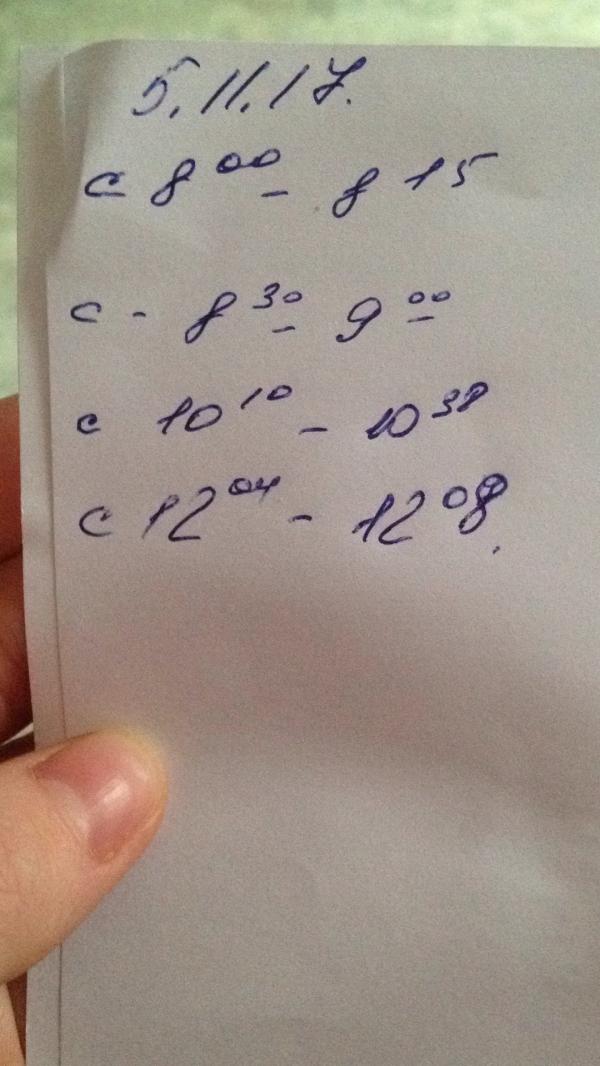 5.11.17.
с 8 00 - 8 15
с - 8 30 - 9 00
с 10 10 - 10 38
с 12 04 - 12 08.